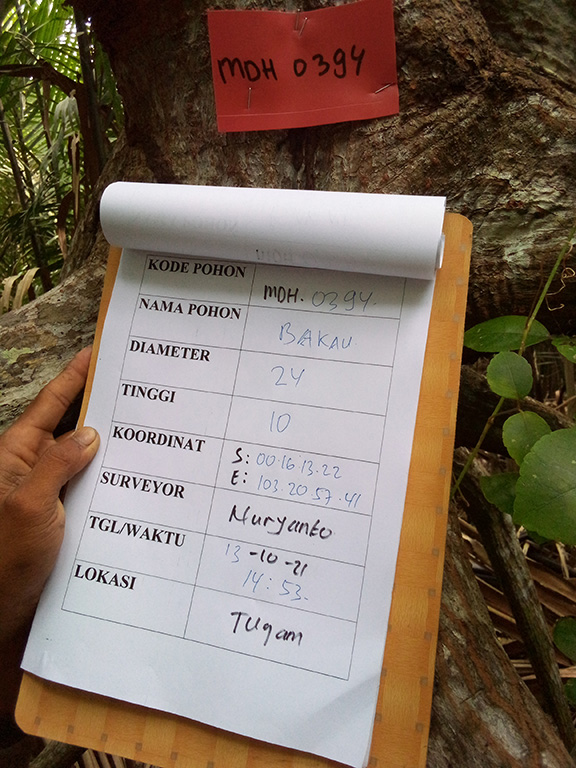 MDH 0394
KODE POHON MDH. 0394.
NAMA POHON BAKAU
DIAMETER 24
TINGGI 10
KOORDINAT S: 00.16.13.22
E: 103.20.57.41
SURVEYOR Nuryanto
TGL/WAKTU 13-10-21
14:53.
LOKASI Tugam